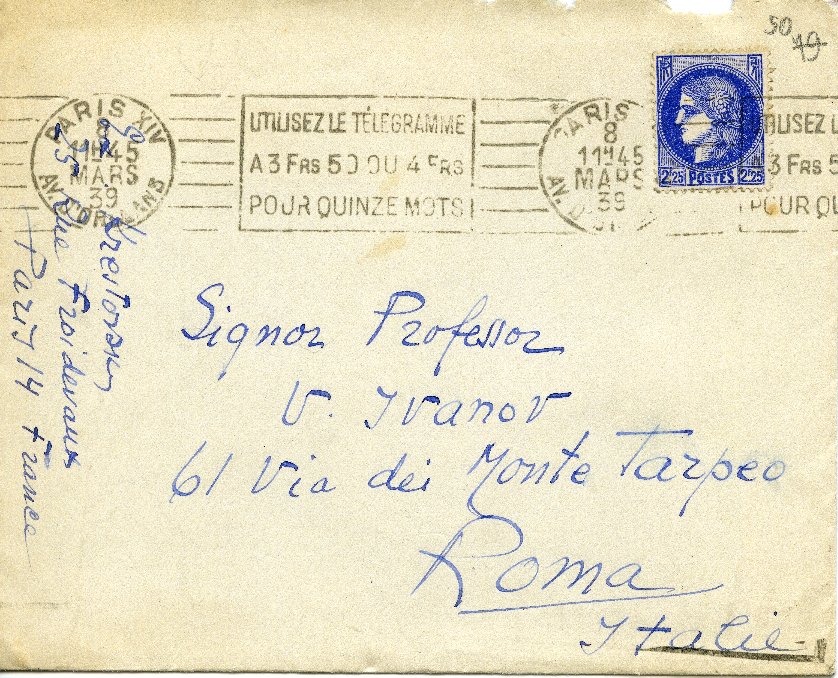 50 49
PARIS XIV
8
11H45
MARS
39
AV. D'ORLEANS
UTILISEZ LE TÉLÉGRAMME
A 3 FRS 50 OU 4 FRS
POUR QUINZE MOTS
PARIS
8
11H45
MARS
39
AV. D
2F25 POSTES 2F25
UTILISEZ L
3 FRS 5
POUR QU
Signor Professor
V. Ivanov
61 Via dei Monte Tarpeo
Roma
Italie
Krestovsky
35 Rue Froidevaux
Paris 14 France